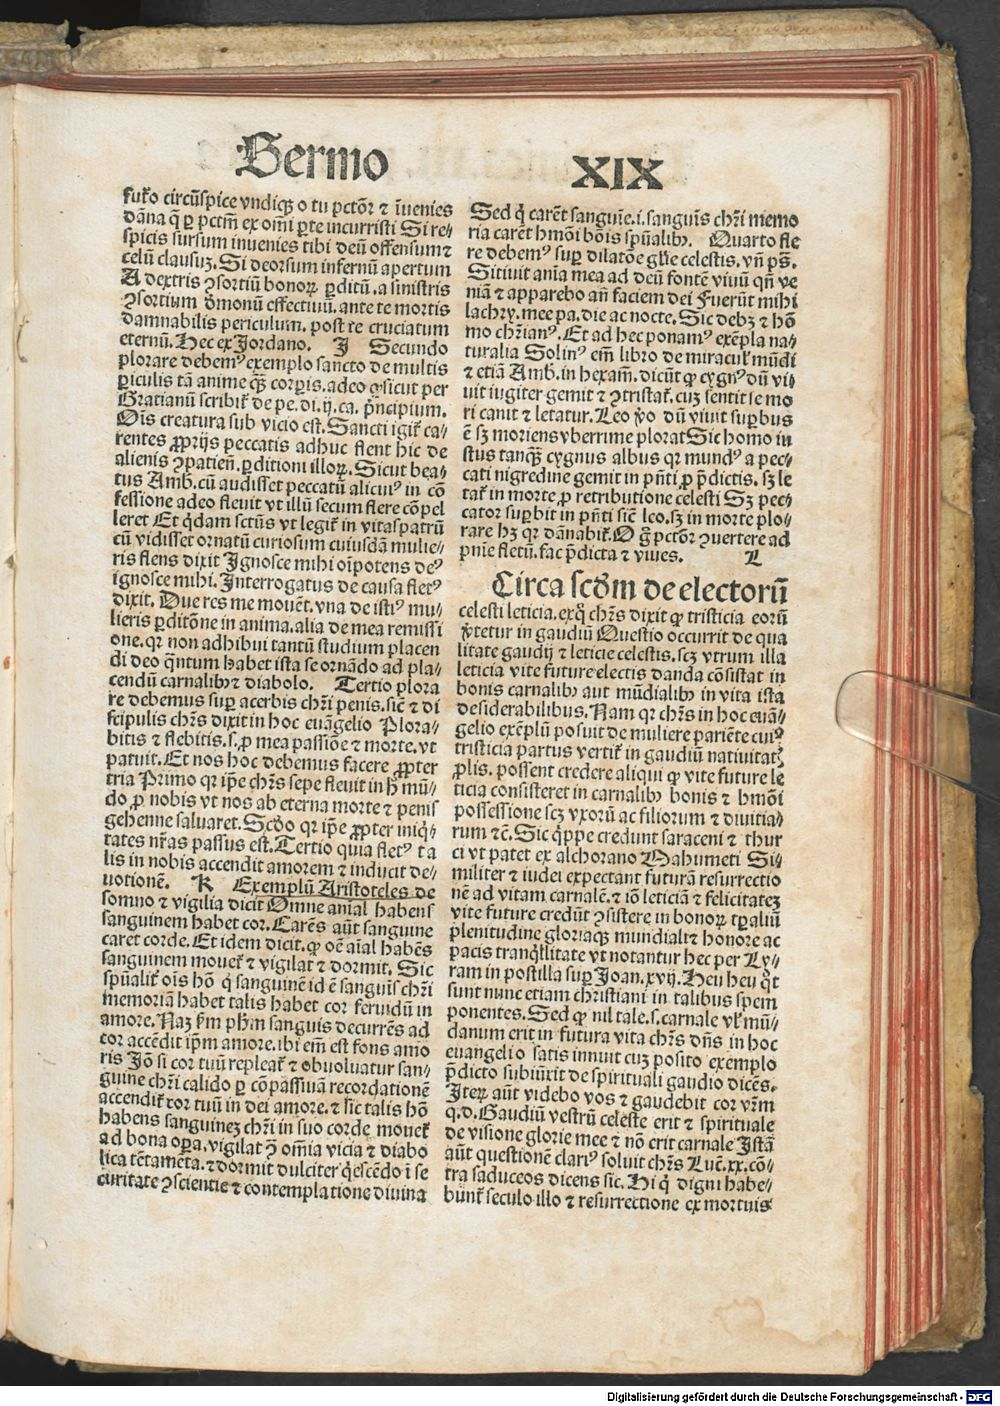 Sermo XIX
furẽo circũspice vndiqꝫ o tu pctõr ⁊ ĩuenies
dãna q̃ ꝑ pctm̃ ex om̃i ꝑte incurristi Si re⸗
spicis sursum inuenies tibi deũ offensum⁊
celũ clausuꝫ. Si deorsum infernũ apertum
A dextris ꝯsortiũ bonoꝝ ꝑditũ. a sinistris
ꝯsortium dẽmonũ effectiuũ. ante te mortis
damnabilis periculum. post te cruciatum
eternũ. Hec ex Jordano. J Secundo
plorare debemꝰ exemplo sancto de multis
ꝑiculis tã anime qᷓꝫ corꝑis. adeo ꝙ sicut per
Gratianũ scribit̃ de pe. di. ij. ca. pͥncipium.
Ois creatura sub vicio est. Sancti igit̃ ca⸗
rentes ꝓprijs peccatis adhuc flent hic de
alienis ꝯpatieñ. ꝑditioni illoꝝ. Sicut bea⸗
tus Amb. cũ audisset peccatũ alicuiꝰ in cõ
fessione adeo fleuit vt illũ secum flere cõpel
leret Et qͥdam sctũs vt legit̃ in vitaspatrũ
cũ vidisset ornatũ curiosum cuiusdã mulie⸗
ris flens dixit Ignosce mihi oĩpotens deꝰ
ignosce mihi. Interrogatus de causa fletꝰ
dixit. Due res me mouẽt. vna de istiꝰ mu⸗
lieris ꝑditõne in anima. alia de mea remissi
one. qꝛ non adhibui tantũ studium placen
di deo qᷓntum habet ista se ornãdo ad pla⸗
cendũ carnalibꝫ⁊ diabolo. Tertio plora
re debemus suꝑ acerbis chr̃i penis. sic̃ ⁊ di
scipulis chr̃s dixit in hoc euãgelio Plora⸗
bitis ⁊ flebitis. s. ꝓ mea passiõe ⁊ morte. vt
patuit. Et nos hoc debemus facere ꝓpter
tria Primo qꝛ ip̃e chr̃s sepe fleuit in hͦ mũ⸗
do ꝓ nobis vt nos ab eterna morte ⁊ penis
gehenne saluaret. Scd̃o qꝛ ip̃e ꝓpter iniqͥ⸗
tates nr̃as passus est. Tertio quia fletꝰ ta
lis in nobis accendit amorem ⁊ inducit de⸗
uotionẽ. K Exemplũ Aristoteles de
somno ⁊ vigilia dicit Omne aĩal habens
sanguinem habet cor. Carẽs aũt sanguine
caret corde. Et idem dicit. ꝙ oẽ aĩal habẽs
sanguinem mouet̃ ⁊ vigilat ⁊ dormit. Sic
sp̃ualit̃ oĩs hõ qͥ sanguinẽ id ẽ sanguĩs chr̃i
memoriã habet talis habet cor feruidũ in
amore. Naꝫ ẜm ph̃m sanguis decurrẽs ad
cor accẽdit ip̃m amore. ibi em̃ est fons amo
ris Jõ si cor tuũ repleat̃ ⁊ obuoluatur san⸗
guine chr̃i calido ꝑ cõpassiuã recordationẽ
accendit̃ cor tuũ in dei amore. ⁊ sic̃ talis hõ
habens sanguineꝫ chr̃i in suo corde mouet̃
ad bona oꝑa. vigilat ꝯ om̃ia vicia ⁊ diabo
lica tẽtamẽta. ⁊ dormit dulciter qͥescẽdo ĩ se
curitate ꝯscientie ⁊ contemplatione diuina
Sed qͥ carẽt sanguĩe. i. sanguĩs chr̃i memo
ria carẽt hmõi bõis sp̃ualibꝫ. Quarto fle
re debemꝰ suꝑ dilatõe gl̃ie celestis. vñ ps̃.
Sitiuit aĩa mea ad deũ fontẽ viuũ qñ ve
niã ⁊ apparebo añ faciem dei Fuerũt mihi
lachry. mee pa. die ac nocte. Sic debꝫ ⁊ hõ
mo chr̃ianꝰ. Et ad hec ponamꝰ exẽpla na⸗
turalia Solinꝰ em̃ libro de miracul̃ mũdi
⁊ etiã Amb. in hexam̃. dicũt ꝙ cygnꝰ dũ vi⸗
uit iugiter gemit ⁊ ꝯtristat̃. cuꝫ sentit se mo
ri canit ⁊ letatur. Leo vͦo dũ viuit suꝑbus
ẽ sꝫ moriens vberrime plorat Sic homo iu
stus tanqᷓꝫ cygnus albus qꝛ mundꝰ a pec⸗
cati nigredine gemit in pñti ꝓ p̃dictis. sꝫ le
tat̃ in morte ꝓ retributione celesti Sꝫ pec⸗
cator suꝑbit in pñti sic̃ leo. sꝫ in morte plo⸗
rare hꝫ qꝛ dãnabit̃. O gͦ pctõr ꝯuertere ad
pnĩe fletũ. fac p̃dicta ⁊ viues. L
Circa scd̃m de electorũ
celesti leticia. ex qͦ chr̃s dixit ꝙ tristicia eorũ
v̓tetur in gaudiũ Questio occurrit de qua
litate gaudij ⁊ leticie celestis. scꝫ vtrum illa
leticia vite future electis danda cõsistat in
bonis carnalibꝫ aut mũdialibꝫ in vita ista
desiderabilibus. Nam qꝛ chr̃s in hoc euã⸗
gelio exẽplũ posuit de muliere pariẽte cuiꝰ
tristicia partus vertit̃ in gaudiũ natiuitatꝭ
ꝓlis. possent credere aliqui ꝙ vite future le
ticia consisteret in carnalibꝫ bonis ⁊ hmõi
possessione scꝫ vxorũ ac filiorum ⁊ diuitia⸗
rum ⁊c̃. Sic qͥppe credunt saraceni ⁊ thur
ci vt patet ex alchorano Mahumeti Si⸗
militer ⁊ iudei expectant futurã resurrectio
nẽ ad vitam carnalẽ. ⁊ iõ leticiã ⁊ felicitateꝫ
vite future credũt ꝯsistere in bonoꝝ tꝑaliũ
plenitudine gloriaqꝫ mundiali⁊ honore ac
pacis tranqͥllitate vt notantur hec per Ly⸗
ram in postilla suꝑ Joan. xvij. Heu heu qͦt
sunt nunc etiam christiani in talibus spem
ponentes. Sed ꝙ nil tale. s. carnale vl̃ mũ⸗
danum erit in futura vita chr̃s dñs in hoc
euangelio satis innuit cuꝫ posito exemplo
p̃dicto subiũxit de spirituali gaudio dicẽs.
Iteꝝ aũt videbo vos ⁊ gaudebit cor vr̃m
q. d. Gaudiũ vestrũ celeste erit ⁊ spirituale
de visione glorie mee ⁊ nõ erit carnale Istã
aũt questionẽ clariꝰ soluit chr̃s Luc̃. xx. cõ⸗
tra saduceos dicens sic. Hi qͥ digni habe⸗
bũnt̃ seculo illo ⁊ resurrectione ex mortuis
Digitalisierung gefördert durch die Deutsche Forschungsgemeinschaft - DFG